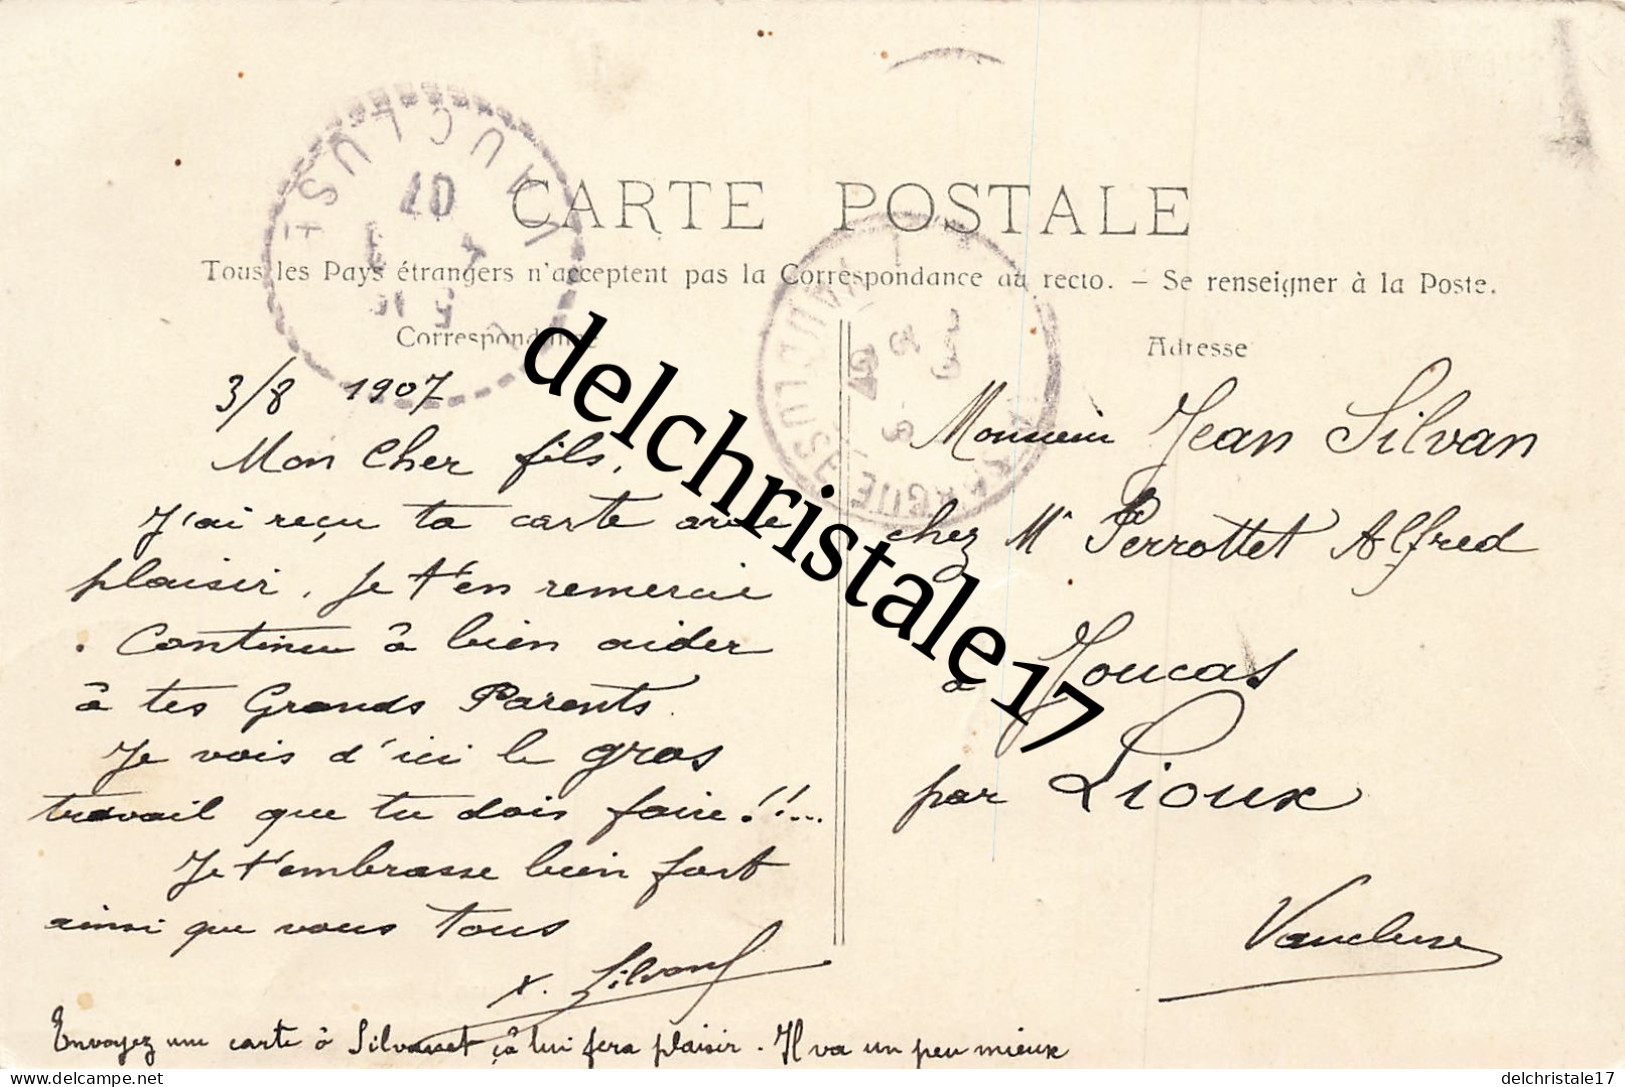 CARTE POSTALE
Tous les Pays étrangers n'acceptent pas la Correspondance au recto. – Se renseigner à la Poste.
Correspondance
3/8 1907
Mon Cher fils,
J'ai reçu ta carte avec
plaisir. Je t'en remercie
. Continu à bien aider
à tes Grands Parents.
Je vois d'ici le gros
travail que tu dois faire!!...
Je t'embrasse bien fort
ainsi que vous tous
Silvan
Envoyez une carte à Silvanet çà lui fera plaisir. Il va un peu mieux
Adresse
Monsieur Jean Silvan
chez Mr Perrottet Alfred
à Joucas
par Lioux
Vaucluse
VAUCLUSE
07
VAUCLUSE
07
delchristale17
delcampe.net
delchristale17